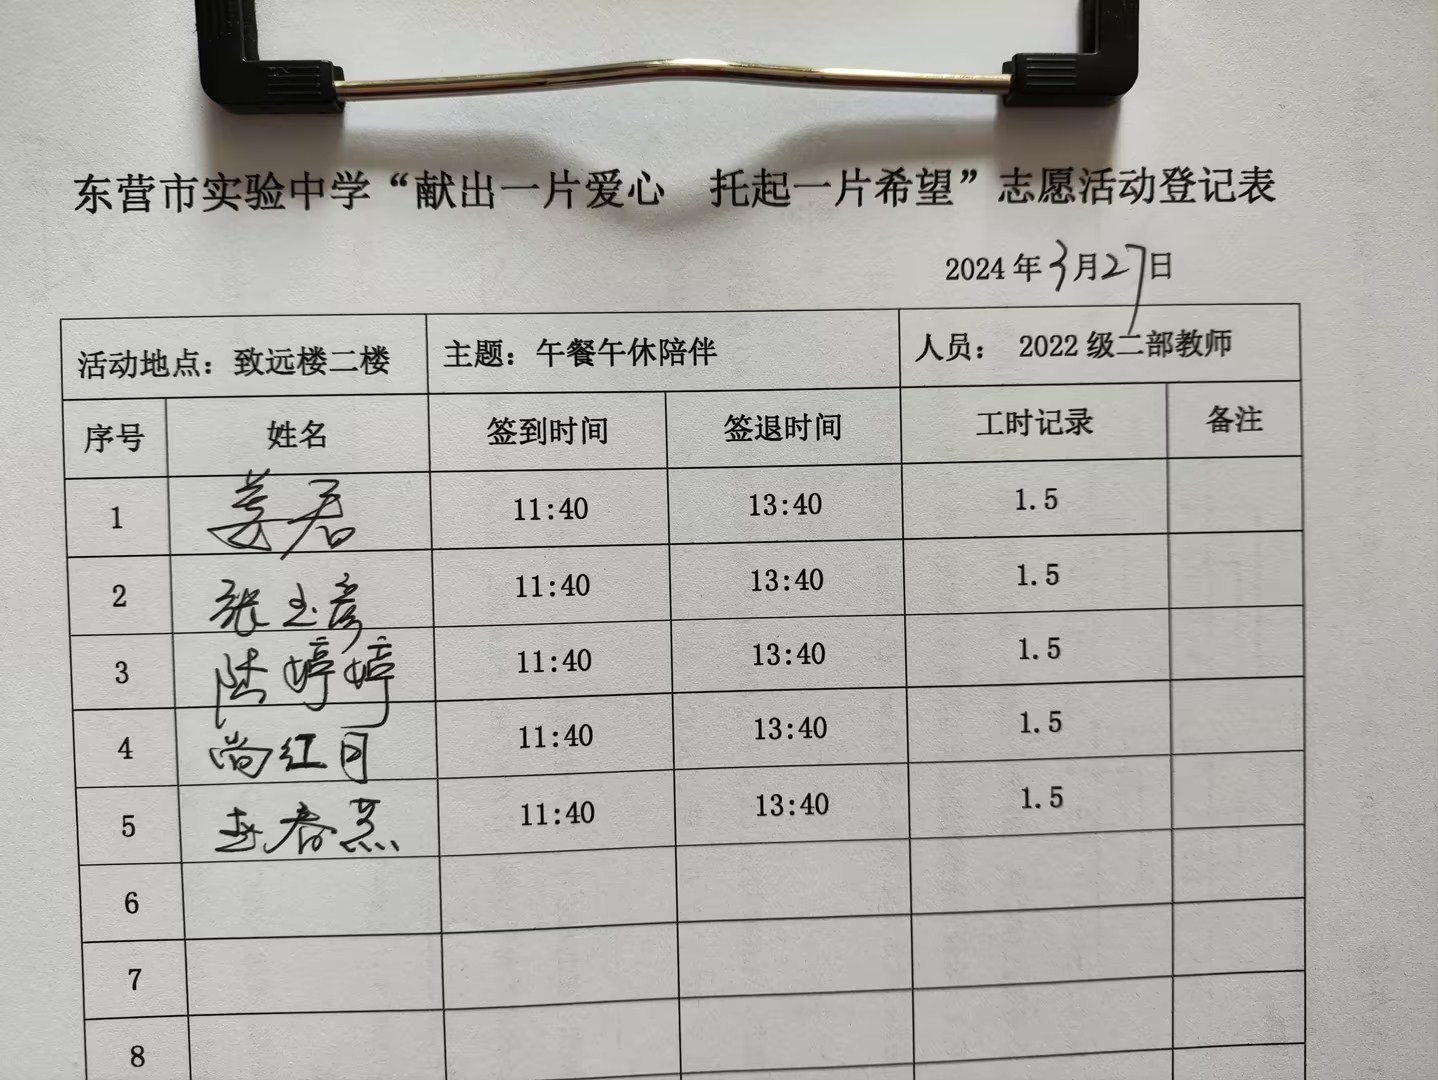 东营市实验中学“献出一片爱心 托起一片希望”志愿活动登记表
2024年3月27日
活动地点：致远楼二楼 主题：午餐午休陪伴 人员： 2022级二部教师
序号 姓名 签到时间 签退时间 工时记录 备注
1 姜君 11:40 13:40 1.5
2 张玉彦 11:40 13:40 1.5
3 陆婷婷 11:40 13:40 1.5
4 尚红月 11:40 13:40 1.5
5 春燕 11:40 13:40 1.5
6
7
8